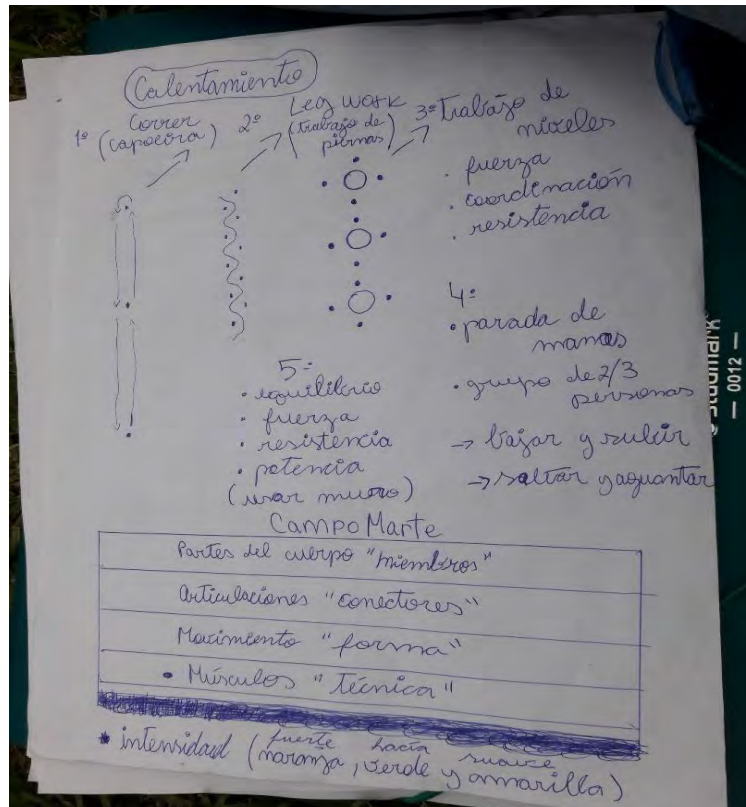 Calentamiento
1º Correr (capoeira)
2º Leg work (trabajo de piernas)
3º trabajo de niveles
· fuerza
· coordinación
· resistencia
4º
· parada de manos
· grupo de 2/3 personas
→ bajar y subir
→ saltar y aguantar
5º
· equilibrio
· fuerza
· resistencia
· potencia
(usar muro)
Campo Marte
Partes del cuerpo "miembros"
Articulaciones "conectores"
Movimiento "forma"
• Músculos "técnica"
* intensidad (fuerte hacia suave
naranja, verde y amarilla)
— 0012 —